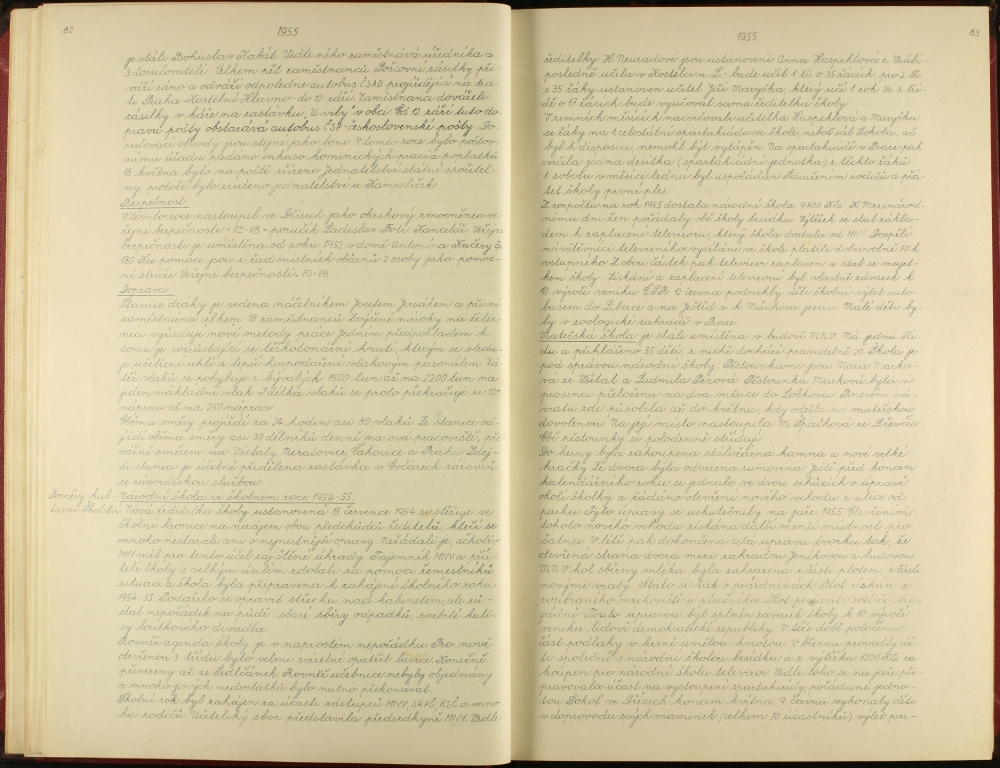 82
1955
je stále Bohuslav Habát. Vedle něho zaměstnává úředníka a
3 doručovatelé. Celkem pět zaměstnanců. Poštovní zásilky při-
váží ráno a odváží odpoledne autobus ČSAD projíždějící na tra-
ti Praha Kostelní Hlavno - do 12. září. Zaměstnanci dováželi
zásilky v káře na zastávku „U vily" v obci. Od 12. září tuto do-
pravu pošty obstarává autobus ČSP - československé pošty. Do-
ručovací obvody jsou stejné jako loni. V tomto roce bylo poštov-
nímu úřadu předáno inkaso kominických prací a poplatků.
15. května bylo na poště zřízeno jednatelství státní spořitel-
ny, protože bylo zrušeno jednatelství u Kampeličky.
Bezpečnost.
V tomto roce nastoupil ve Dřísech jako okrskový zmocněnec ve-
řejné bezpečnosti - OZ-VB - poručík Ladislav Fotl. Kancelář Veřejné
bezpečnosti je umístěna od roku 1952 v domě Antonína Kučery čp.
180. Ku pomoci jsou z řad místních občanů 2 osoby jako pomoc-
né stráže Veřejné bezpečnosti. PS-VB.
Doprava.
Stanice dráhy je vedena náčelníkem Josefem Jirsákem a při ní
zaměstnáno celkem 18 zaměstnanců. Zvýšené nároky na želez-
nici vyžadují nové metody práce. Jedním předpokladem k
tomu je rozrůstající se těžkotonážní hnutí, kterým se sledu-
je ušetření uhlí a lepší hospodaření vlakovým personálem. Zá-
těž vlaků se pohybuje z bývalých 1500 tun až na 2200 tun na
jeden nákladní vlak. I délka vlaků se proto překračuje ze 120
náprav až na 250 náprav.
Oběma směry projíždí za 24 hodin asi 80 vlaků. Ze stanice od-
jíždí oběma směry asi 30 dělníků denně na svá pracoviště, pře-
vážně směrem na Všetaty, Neratovice, Čakovice a Prahu. Zdej-
ší stanici je účelně přidělena zastávka v Ovčárech zároveň
se závorářskou službou.
Poměry kul-
turní. Školství
Národní škola ve školním roce 1954-55.
Nová ředitelka školy ustanovená 15. července 1954 se stěžuje ve
školní kronice na nezájem obou předchůdců ředitelů, kteří se
mnoho nestarali ani o nejnutnější opravy. Nežádali je, ačkoliv
MNV měl pro tento účel zajištěné úhrady. Tajemník MNV a přá-
telé školy s velkým úsilím zdolali za pomoci řemeslníků
situaci a škola byla připravena k zahájení školního roku
1954-55. Podařilo se opravit střechu nad kabinetem, ale zů-
stal nepořádek na půdě: staré sbírky odpadků, rozbité kuli-
sy loutkového divadla.
Rovněž agenda školy je v naprostém nepořádku. Pro nově
otevřenou 3. třídu bylo velmi svízelné opatřit lavice. Konečně
přivezeny až ze Sedlčánek. Rovněž učebnice nebyly objednány
a mnoho jiných nedostatků bylo nutno překonávat.
Školní rok byl zahájen za účasti zástupců MNV, SRPŠ, KSČ a mno-
ha rodičů. Učitelský sbor představila předsedkyně MNV. Vedle
1955
83
ředitelky H. Neuradové jsou ustanoveni Anna Haspeklová z Vráb-
posledně učila v Kostelci n. L. - bude učit 1. tř. o 35 žácích, pro 2. tř.
s 35 žáky ustanoven učitel Jiří Maryška, který učí 1 rok. Ve 3. tří-
dě o 17 žácích bude vyučovat sama ředitelka školy.
V zimních měsících nacvičovali učitelka Haspeklová a Maryška
se žáky na 1. celostátní spartakiádu ve škole, neboť sál Sokola, ač
byl k disposici, nemohl být vytápěn. Na spartakiádě v Praze pak
cvičila jedna desítka (spartakiádní jednotka) z těchto žáků.
1. sobotu v měsíci lednu byl uspořádán Sdružením rodičů a přá-
tel školy první ples.
Z rozpočtu na rok 1955 dostala národní škola 9.800 Kčs. K Mezinárod-
nímu dni žen pořádaly obě školy besídku. Výtěžek se stal zákla-
dem k zaplacení televizoru, který škola dostala od MNV. Dospělí
návštěvníci televizního vysílání ve škole platili dobrovolně 50 h
vstupného. Z obou částek pak televizor zaplacen a stal se majet-
kem školy. Získání a zaplacení televizoru byl vlastně závazek k
10. výročí vzniku ČSR. 12. června podnikly děti školní výlet auto-
busem do Liberce a na Ještěd a k Máchovu jezeru. Malé děti by-
ly v zoologické zahradě v Praze.
Mateřská škola je stále umístěna v budově MNV. Má jednu tří-
du a přihlášeno 35 dětí, z nichž dochází pravidelně 20. Škola je
pod správou národní školy. Pěstounkami jsou Marie Macko-
vá ze Všetat a Ludmila Pexová. Pěstounka Macková byla v
prosinci přeložena na dva měsíce do Lobkovic. Po svém ná-
vratu zde působila až do května, kdy odešla na mateřskou
dovolenou. Na její místo nastoupila M. Špačková ze Dřevčic.
Obě pěstounky se polodenně střídají.
Do herny byla zakoupena stáložárná kamna a nové velké
hračky. Ze dvora byla odvezena rumovina. Ještě před koncem
kalendářního roku se jednalo ve dvou schůzích o úpravě
okolí školky a žádáno otevření nového vchodu z ulice od
parku. Tyto úpravy se uskutečnily na jaře 1955. Otevřením
tohoto nového vchodu získána další menší místnost pro
šatnu. V létě pak dokončena celá úprava dvorku tak, že
otevřená strana dvora mezi zahradou Jeníkovou a budovou
MNV kol sběrny mléka byla zahrazena z části plotem, z části
novými vraty. Stalo se tak o prázdninách. Plot získán z
rozebraného mrchoviště u písečníku. Plot postavili rodiče bri-
gádně. Touto úpravou byl splněn závazek školy k 10. výročí
vzniku lidově demokratické republiky. V téže době položena
část podlahy v herně umělou hmotou. V březnu prováděly dě-
ti společně s národní školou besídku a z výtěžku 1200 Kčs za-
koupen pro národní školu televizor. Vedle toho se na jaře při-
pravovala účast na vystoupení spartakiády, pořádané jedno-
tou Sokol ve Dřísech koncem května. 9. června vykonaly děti
v doprovodu svých maminek (celkem 70 účastníků) výlet par-